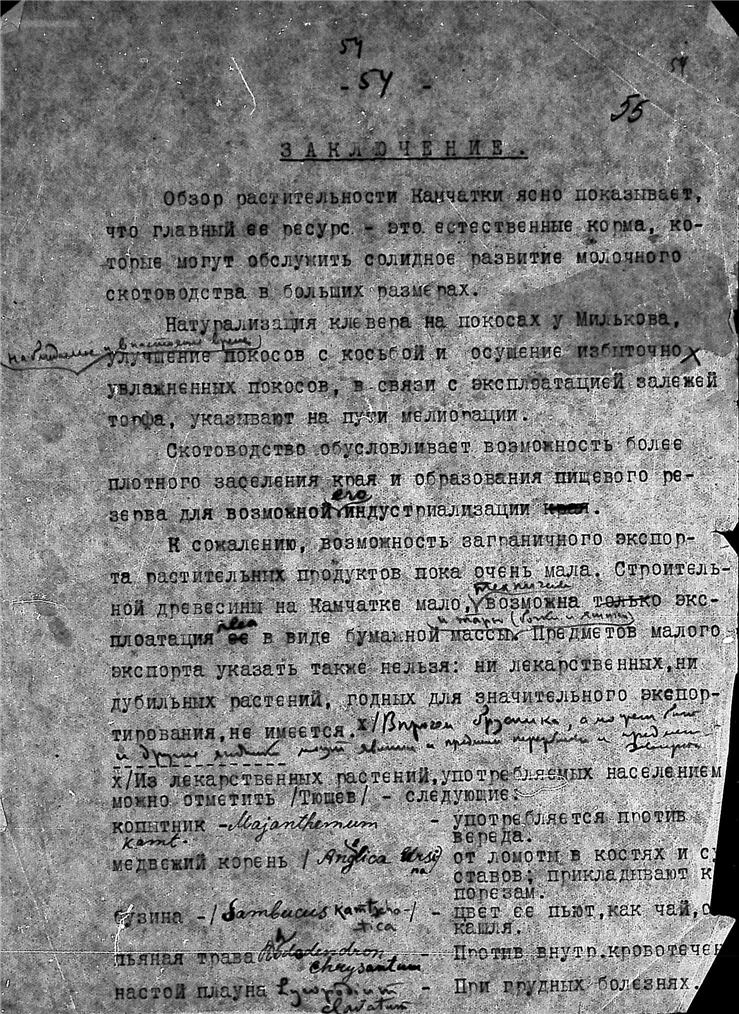 54
- 54 -
54
55
ЗАКЛЮЧЕНИЕ.
Обзор растительности Камчатки ясно показывает,
что главный ее ресурс - это естественные корма, ко-
торые могут обслужить солидное развитие молочного
скотоводства в больших размерах.
Натурализация клевера на покосах у Милькова,
улучшение покосов с косьбой и осушение избыточно
увлажненных покосов, в связи с эксплоатацией залежей
торфа, указывают на пути мелиорации.
Скотоводство обусловливает возможность более
плотного заселения края и образования пищевого ре-
его
зерва для возможной индустриализации края.
К сожалению, возможность заграничного экспор-
та растительных продуктов пока очень мала. Строитель-
ной древесины на Камчатке мало, возможна только экс-
и тары
плоатация ее в виде бумажной массы. Предметов малого
экспорта указать также нельзя: ни лекарственных,ни
дубильных растений, годных для значительного экспор-
тирования,не имеется. х/ Впрочем брусника, а
и другие ягодники могут явиться и
х/Из лекарственных растений,употребляемых населением
можно отметить /Тюшев/ - следующие:
копытник - Majanthemum - употребляется против
kamt. вереда.
медвежий корень / Anglica Ursi от ломоты в костях и су
na ставов; прикладывают к
порезам.
бузина -/ Sambucus kamtscha-/ - цвет ее пьют,как чай,о
tica кашля.
пьяная трава Rhododendron - Против внутр.кровотечен
chrysantum
настой плауна Lycopodium - При грудных болезнях.
clavatum